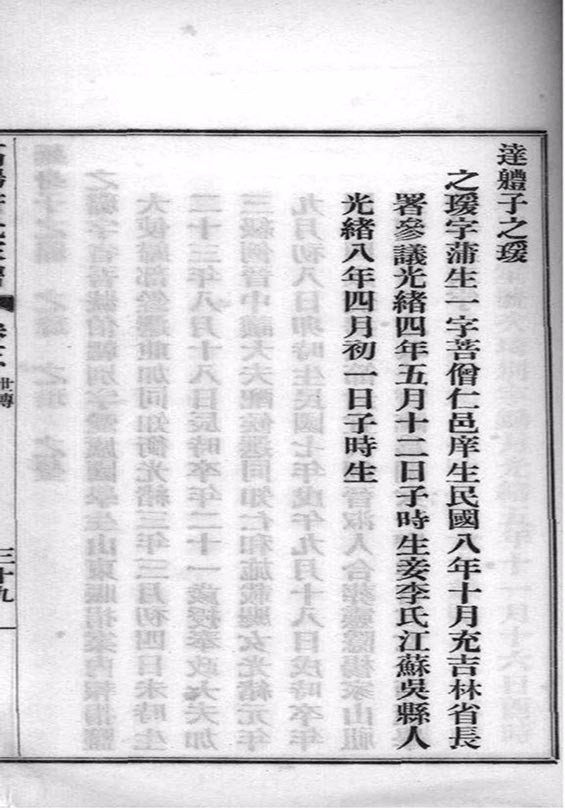 達軆子之瑗
之瑗字蒲生一字菩僧仁邑庠生民國八年十月充吉林省長
署參議光緒四年五月十二日子時生妾李氏江蘇吳縣人
光緒八年四月初一日子時生
世傳
三十九